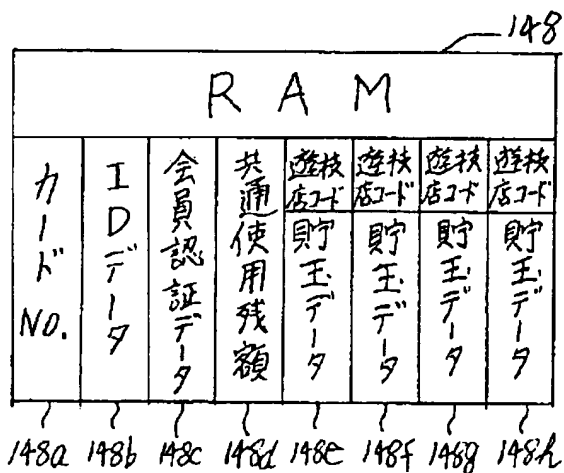 148
RAM
カードNO.
IDデータ
会員認証データ
共通使用残額
遊技
店コード
貯玉データ
遊技
店コード
貯玉データ
遊技
店コード
貯玉データ
遊技
店コード
貯玉データ
148a 148b 148c 148d 148e 148f 148g 148h